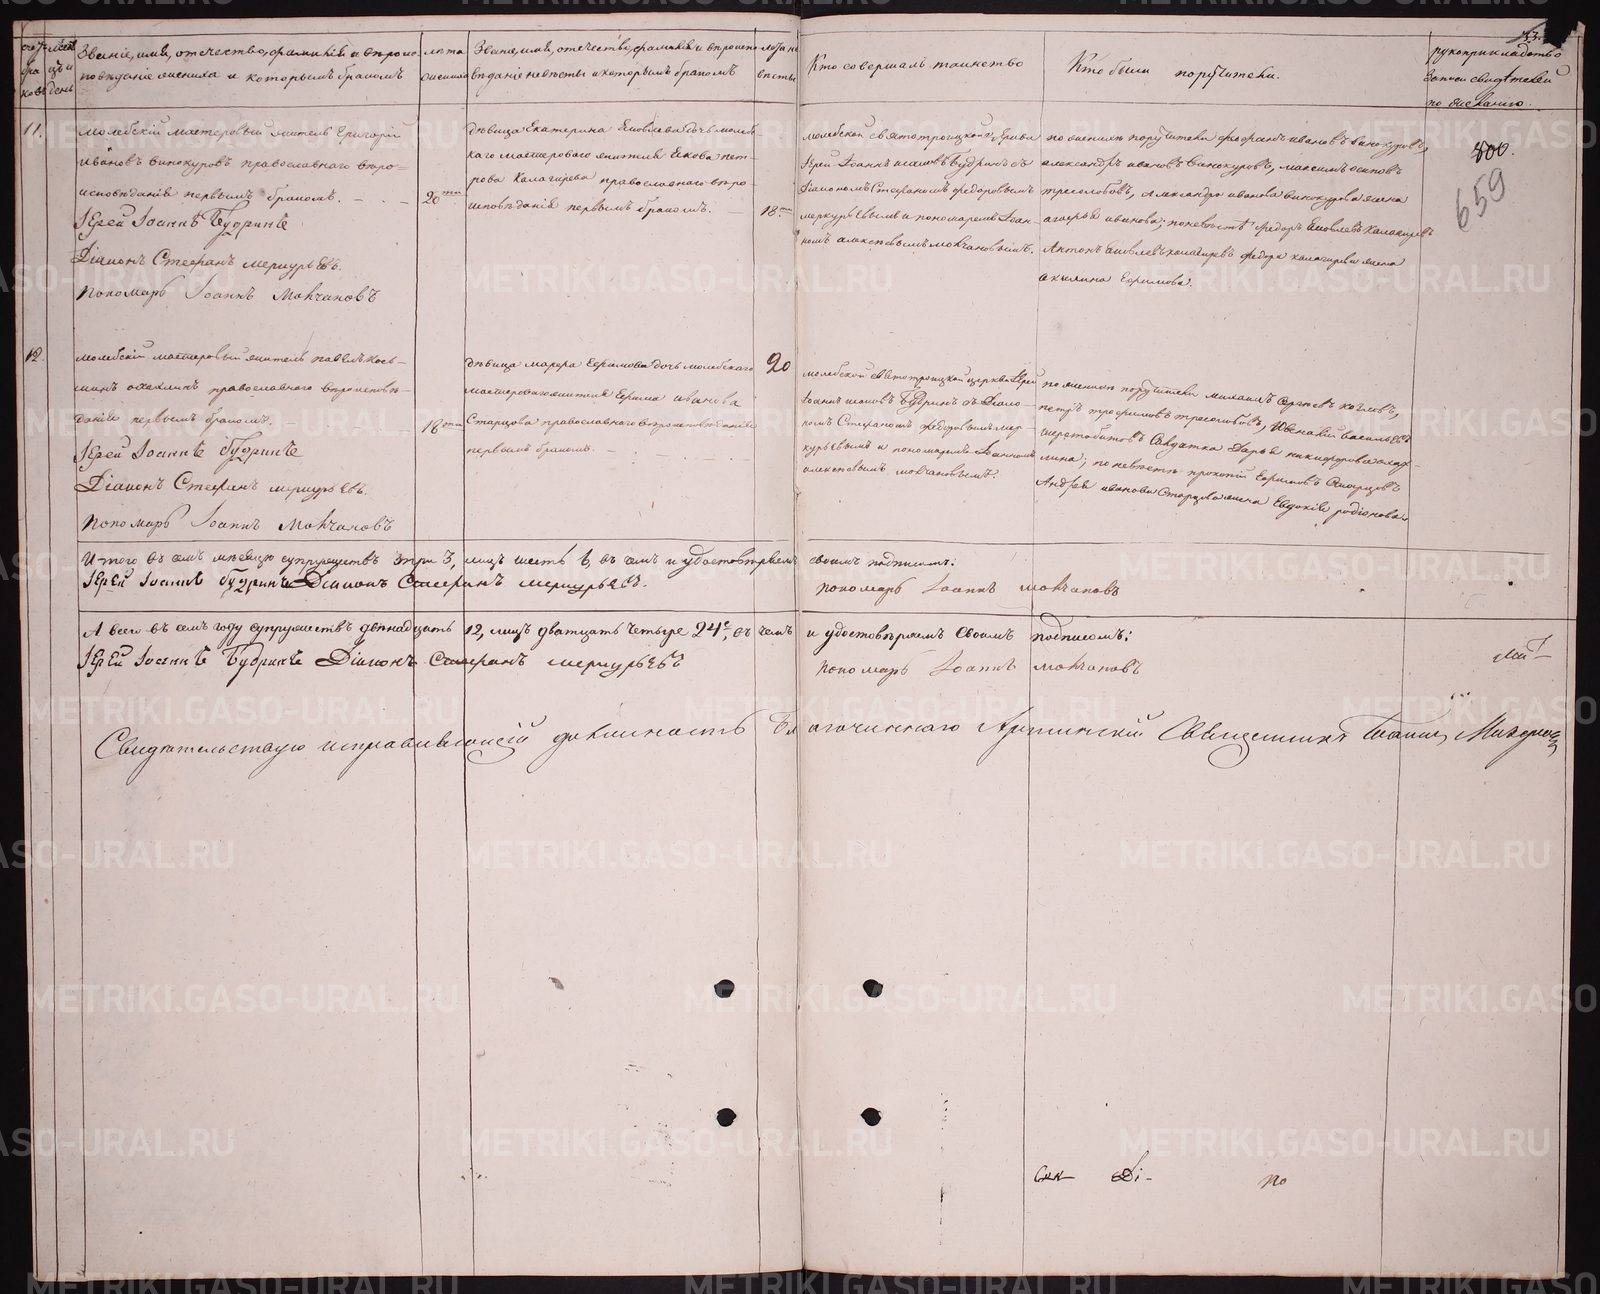 Званіе, имя, отечество, фамилія и вѣроис-
повѣданіе жениха и которымъ бракомъ
лѣта
жениха
Званіе, имя, отечество, фамилія и вѣроиспо-
вѣданіе невѣсты и которымъ бракомъ
лѣта не
вѣсты
Кто совершалъ таинство
Кто были поручители.
рукоприкладство
записи свидѣтелей
по желанію.
11.
молебскій мастеровый житель Григорій
ивановъ винокуровъ православнаго вѣро-
исповѣданія первымъ бракомъ.
Іерей Іоаннъ Будринъ
Діаконъ Стефанъ меркурьевъ.
пономарь Іоаннъ Молчановъ
20
дѣвица Екатерина Яковлева дочь молеб-
каго мастероваго жителя Якова пет-
рова Калагирева православнаго вѣро-
исповѣданія первымъ бракомъ.
18
молебской святотроицкой церкви
Іерей Іоаннъ Будринъ съ
діакономъ Стефаномъ федоровымъ
меркурьевымъ и пономаремъ Іоан-
номъ алексѣевымъ молчановымъ.
по женихѣ поручители феофанъ ивановъ винокуровъ,
александръ ивановъ винокуровъ, максимъ осиповъ
треголобовъ, александра иванова винокурова жена
иванова; по невѣстѣ федоръ Яковлевъ Калагиревъ
Антонъ Яковлевъ калагиревъ федора калагирева жена
акилина Ефимова.
800.
659
12.
молебскій мастеровый житель павелъ козь-
минъ православнаго вѣроисповѣ-
данія первымъ бракомъ.
Іерей Іоаннъ Будринъ
Діаконъ Стефанъ меркурьевъ.
пономарь Іоаннъ Молчановъ
18
дѣвица марфа Ефимова дочь молебскаго
мастероваго жителя Ефима иванова
Старцова православнаго вѣроисповѣданія
первымъ бракомъ.
20
молебской святотроицкой церкви Іерей
Іоаннъ Будринъ съ Діако-
номъ Стефаномъ федоровымъ мер-
курьевымъ и пономаремъ Іоанномъ
алексѣевымъ молчановымъ.
по женихѣ поручители михаилъ Сергѣевъ козловъ,
петръ трофимовъ треголобовъ, васильевъ
шерстобитовъ Солдатка Дарья никифорова
по невѣстѣ прокопій Ефимовъ Старцовъ
Андрея иванова Старцова жена Евдокія родіонова.
Итого въ семъ мѣсяцѣ супружествъ три 3, лицъ шесть 6, въ чемъ и удостовѣряемъ своимъ подписомъ:
Іерей Іоаннъ Будринъ Діаконъ Стефанъ меркурьевъ. пономарь Іоаннъ молчановъ
А всего въ семъ году супружествъ двѣнадцать 12, лицъ дватцать четыре 24, въ чемъ и удостовѣряемъ Своимъ подписомъ:
Іерей Іоаннъ Будринъ Діаконъ Стефанъ меркурьевъ пономарь Іоаннъ молчановъ
Свидѣтельствую исправляющій должность Благочиннаго Артинскій Священникъ Іоаннъ
Ді-
по
METRIKI.GASO-URAL.RU